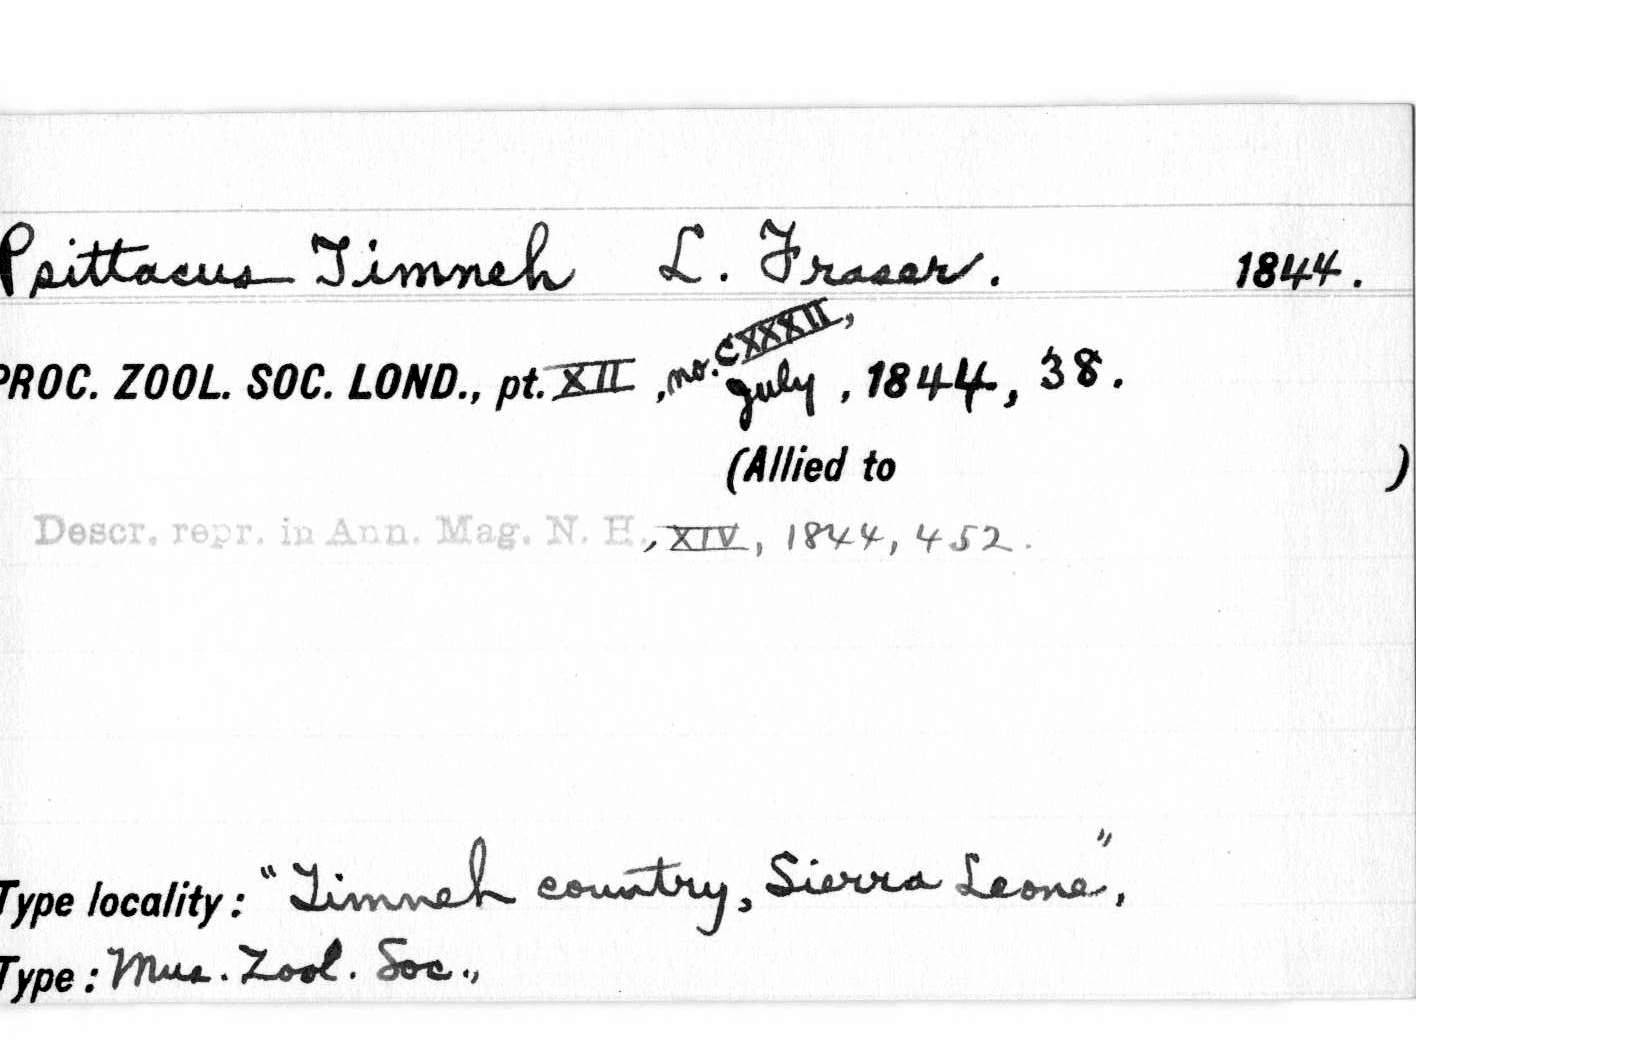 Psittacus Timneh L. Fraser. 1844.
PROC. ZOOL. SOC. LOND., pt. XII, no. CXXXII, July, 1844, 38.
(Allied to )
Descr. repr. in Ann. Mag. N. H., XIV, 1844, 452.
Type locality: "Timneh country, Sierra Leone",
Type: Mus. Zool. Soc.,